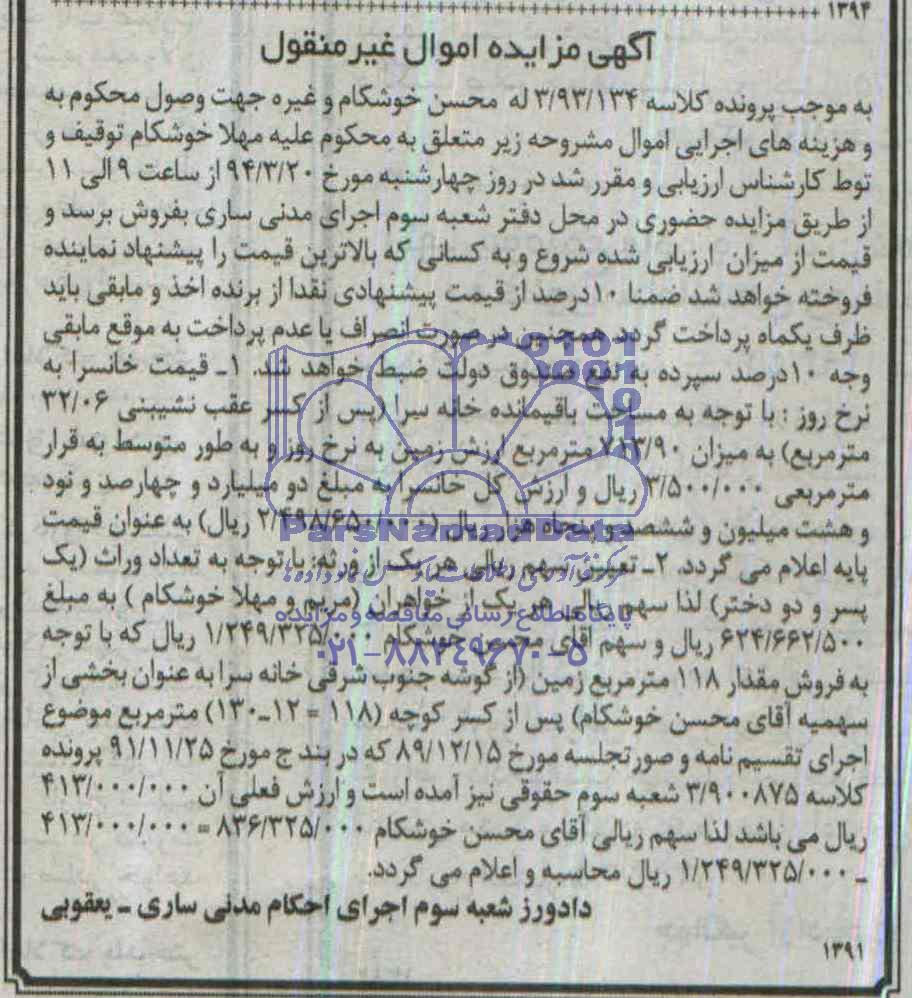 ۱۳۹۴
آگهی مزایده اموال غیرمنقول
به موجب پرونده کلاسه ۳/۹۳/۱۳۴ له محسن خوشکام و غیره جهت وصول محکوم به
و هزینه های اجرایی اموال مشروحه زیر متعلق به محکوم علیه مهلا خوشکام توقیف و
توط کارشناس ارزیابی و مقرر شد در روز چهارشنبه مورخ ۹۴/۳/۲۰ از ساعت ۹ الی ۱۱
از طریق مزایده حضوری در محل دفتر شعبه سوم اجرای مدنی ساری بفروش برسد و
قیمت از میزان ارزیابی شده شروع و به کسانی که بالاترین قیمت را پیشنهاد نماینده
فروخته خواهد شد ضمنا ۱۰درصد از قیمت پیشنهادی نقدا از برنده اخذ و مابقی باید
ظرف یکماه پرداخت گردد. همچنین در صورت انصراف یا عدم پرداخت به موقع مابقی
وجه ۱۰درصد سپرده به نفع صندوق دولت ضبط خواهد شد. ۱ـ قیمت خانسرا به
نرخ روز : با توجه به مساحت باقیمانده خانه سرا (پس از کسر عقب نشیبنی ۳۲/۰۶
مترمربع) به میزان ۷۱۳/۹۰ مترمربع ارزش زمین به نرخ روز و به طور متوسط به قرار
مترمربعی ۳/۵۰۰/۰۰۰ ریال و ارزش کل خانسرا به مبلغ دو میلیارد و چهارصد و نود
و هشت میلیون و ششصد و پنجاه هزار ریال (۲/۴۹۸/۶۵۰/۰۰۰ ریال) به عنوان قیمت
ParsNamadData
پایه اعلام می گردد. ۲ـ تعیین سهم ریالی هر یک از ورثه: با توجه به تعداد وراث (یک
پسر و دو دختر) لذا سهم ریالی هر یک از خواهران (مریم و مهلا خوشکام ) به مبلغ
پایگاه اطلاع رسانی مناقصه و مزایده
۶۲۴/۶۶۲/۵۰۰ ریال و سهم آقای محسن خوشکام ۱/۲۴۹/۳۲۵/۰۰۰ ریال که با توجه
۰۲۱-۸۸۳۴۹۶۷۰-۵
به فروش مقدار ۱۱۸ مترمربع زمین (از گوشه جنوب شرقی خانه سرا به عنوان بخشی از
سهمیه آقای محسن خوشکام) پس از کسر کوچه (۱۱۸ = ۱۲ـ۱۳۰) مترمربع موضوع
اجرای تقسیم نامه و صورتجلسه مورخ ۸۹/۱۲/۱۵ که در بند ج مورخ ۹۱/۱۱/۲۵ پرونده
کلاسه ۳/۹۰۰۸۷۵ شعبه سوم حقوقی نیز آمده است و ارزش فعلی آن ۴۱۳/۰۰۰/۰۰۰
ریال می باشد لذا سهم ریالی آقای محسن خوشکام ۸۳۶/۳۲۵/۰۰۰ = ۴۱۳/۰۰۰/۰۰۰
ـ ۱/۲۴۹/۳۲۵/۰۰۰ ریال محاسبه و اعلام می گردد.
دادورز شعبه سوم اجرای احکام مدنی ساری ـ یعقوبی
۱۳۹۱